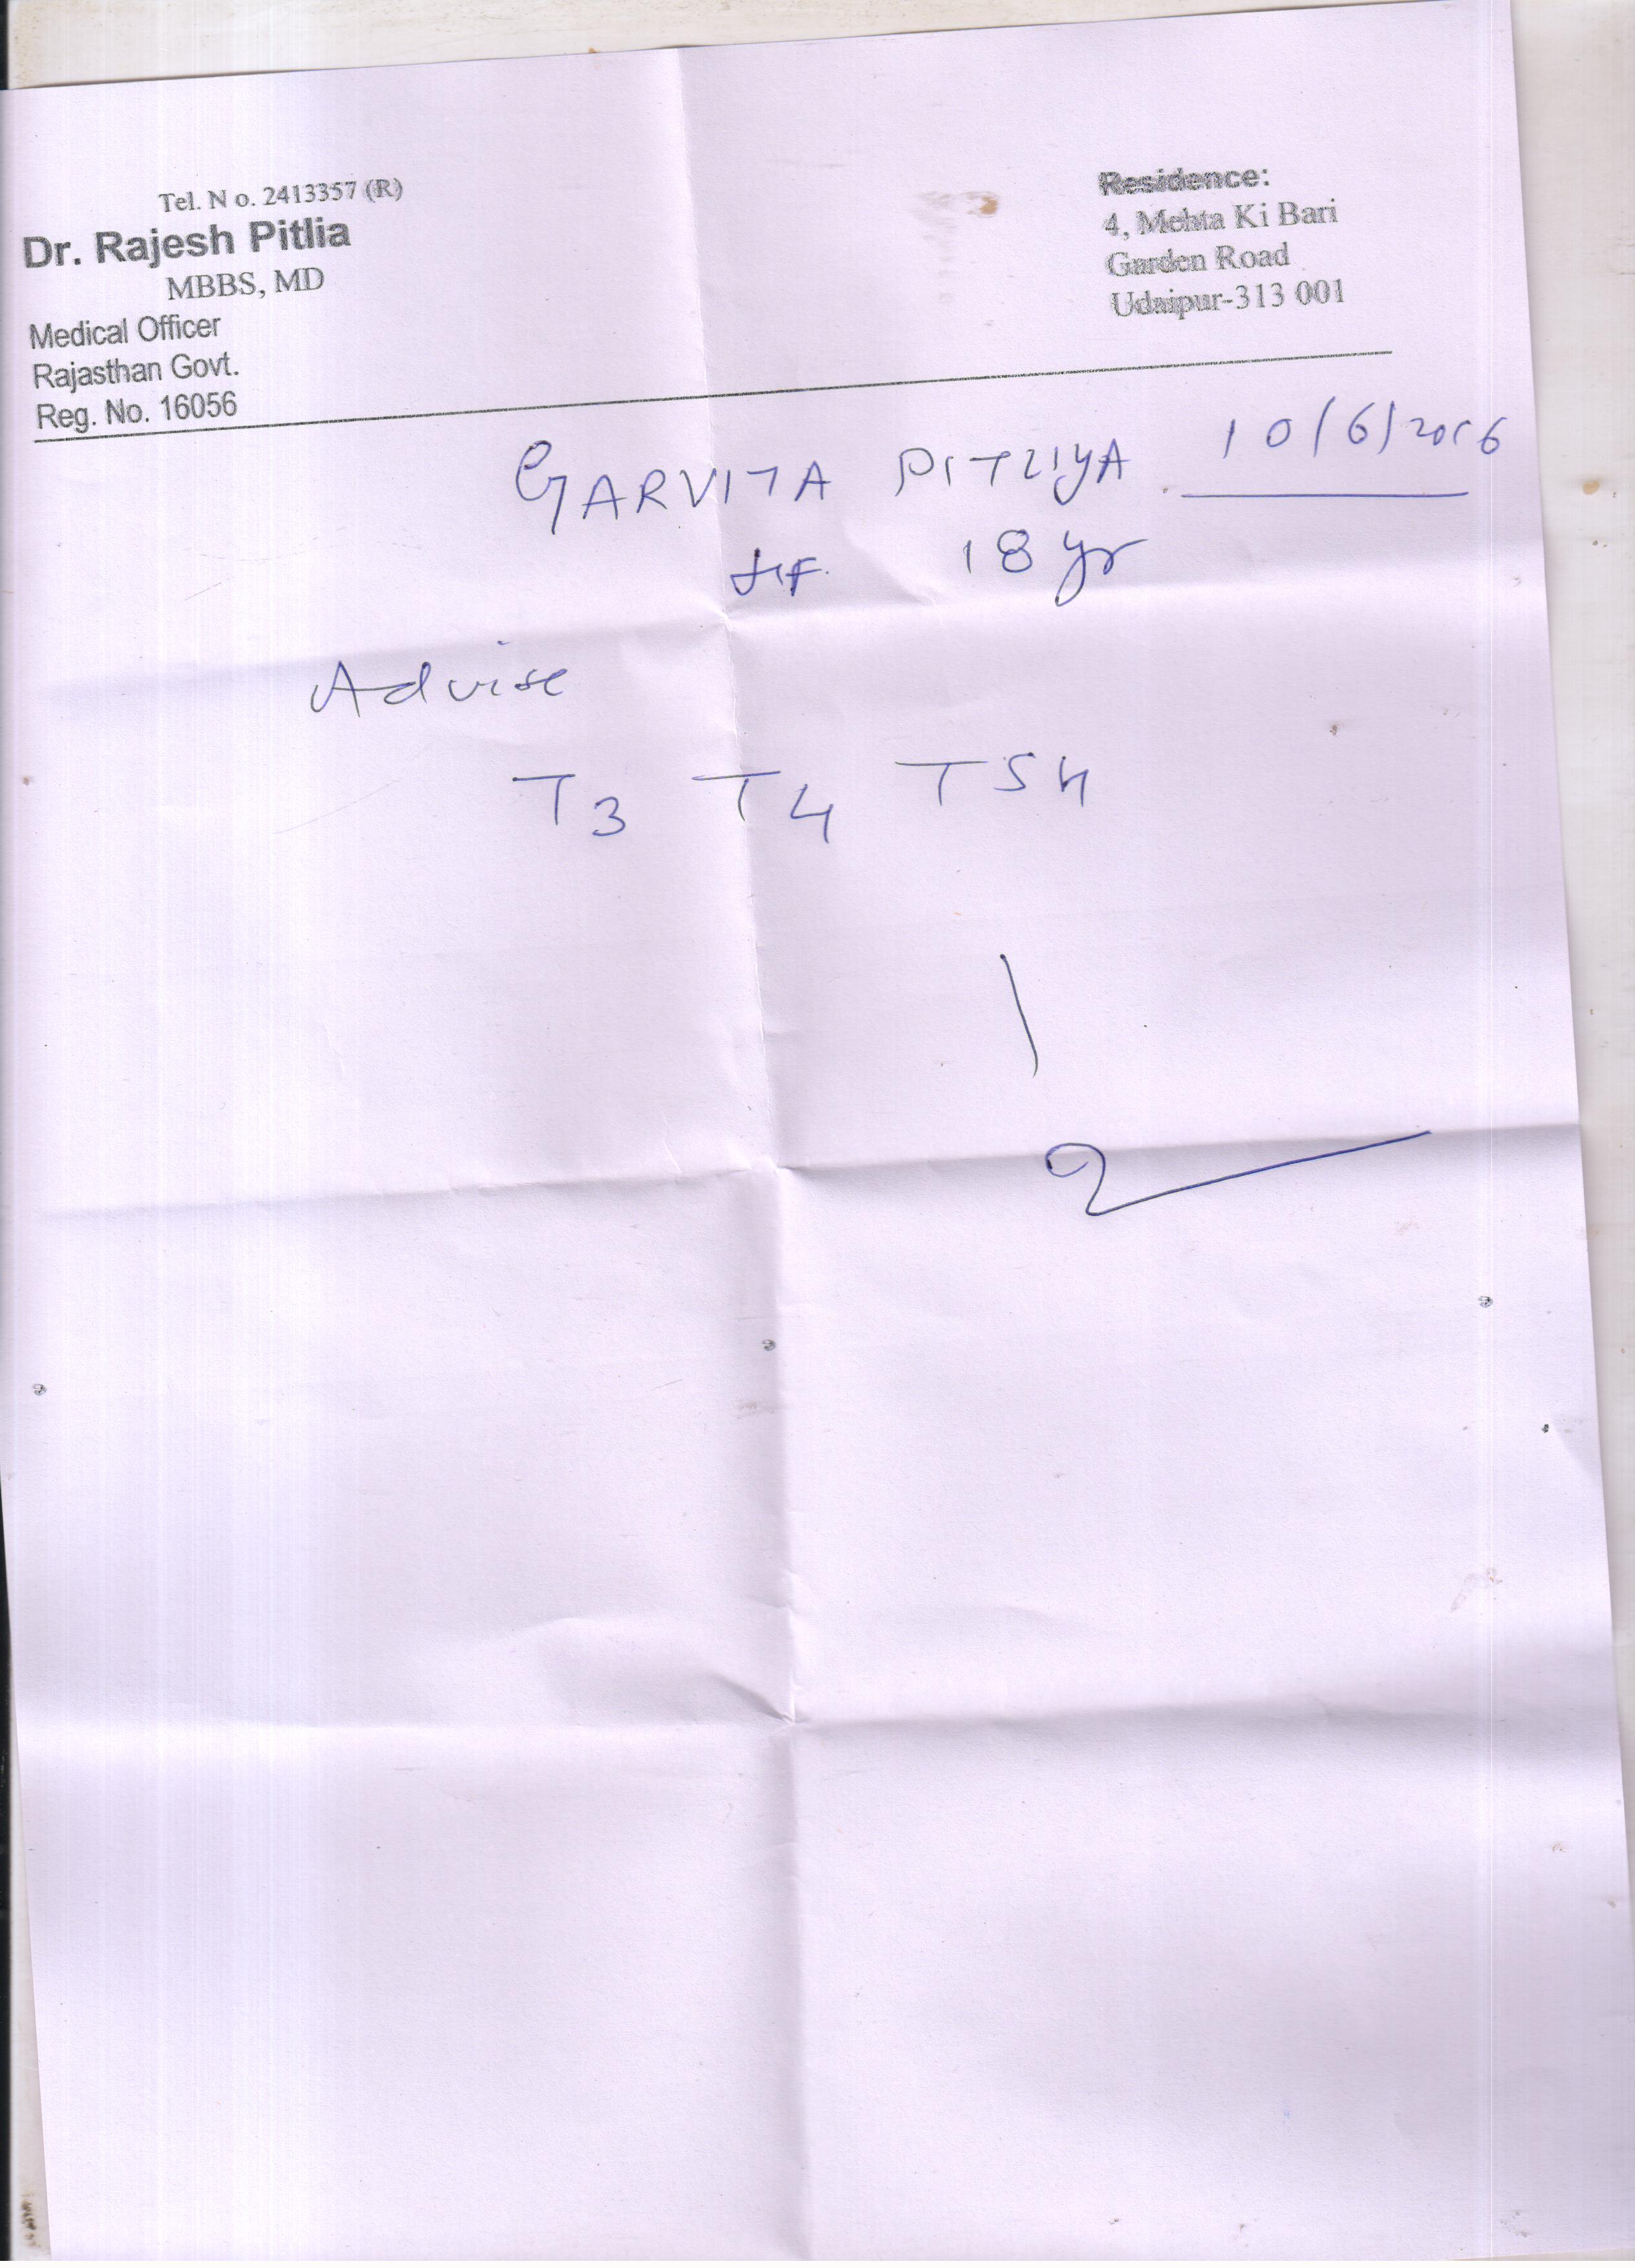 Tel. No. 2413357 (R)
Dr. Rajesh Pitlia
MBBS, MD
Medical Officer
Rajasthan Govt.
Reg. No. 16056
Residence:
4, Mehta Ki Bari
Garden Road
Udaipur-313 001
10/6/2016
GARVITA PITLIYA
F 18 yr
Advise
T3 T4 TSH